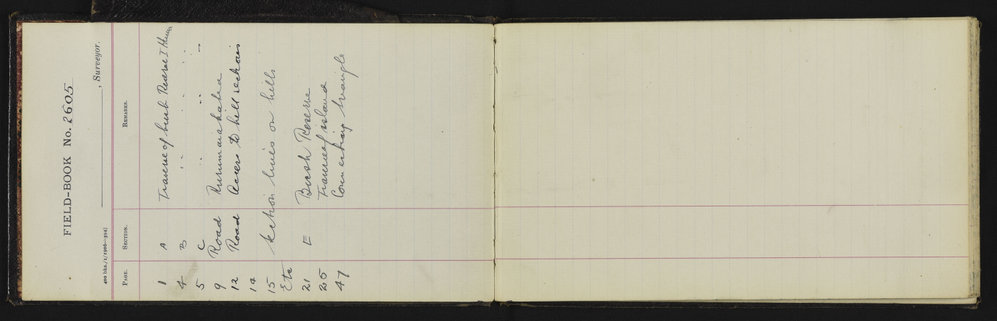 FIELD-BOOK No. 2605
, Surveyor.
400 bks./1/1906—594]
PAGE. SECTION. REMARKS.
1 A Traverse of bush Reserve I
4 B " "
5 C " " "
9 Road
12 Road Access to hill sections
14
15 Section lines on hills
Etc
21 E Bush Reserve
25 Traverse of island
47 Connecting triangle